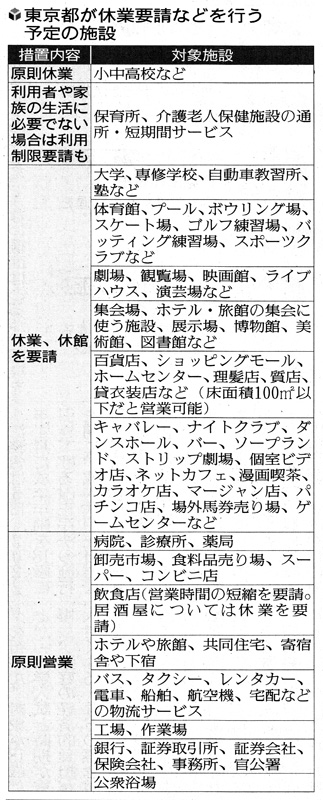 東京都が休業要請などを行う
予定の施設
措置内容
対象施設
原則休業
小中高校など
利用者や家
族の生活に
必要でない
場合は利用
制限要請も
保育所、介護老人保健施設の通
所・短期間サービス
休業、休館
を要請
大学、専修学校、自動車教習所、
塾など
体育館、プール、ボウリング場、
スケート場、ゴルフ練習場、バ
ッティング練習場、スポーツク
ラブなど
劇場、観覧場、映画館、ライブ
ハウス、演芸場など
集会場、ホテル・旅館の集会に
使う施設、展示場、博物館、美
術館、図書館など
百貨店、ショッピングモール、
ホームセンター、理髪店、質店、
貸衣装店など（床面積100㎡以
下だと営業可能）
キャバレー、ナイトクラブ、ダ
ンスホール、バー、ソープラン
ド、ストリップ劇場、個室ビデ
オ店、ネットカフェ、漫画喫茶、
カラオケ店、マージャン店、パ
チンコ店、場外馬券売り場、ゲ
ームセンターなど
原則営業
病院、診療所、薬局
卸売市場、食料品売り場、スー
パー、コンビニ店
飲食店（営業時間の短縮を要請。
居酒屋については休業を要
請）
ホテルや旅館、共同住宅、寄宿
舎や下宿
バス、タクシー、レンタカー、
電車、船舶、航空機、宅配など
の物流サービス
工場、作業場
銀行、証券取引所、証券会社、
保険会社、事務所、官公署
公衆浴場